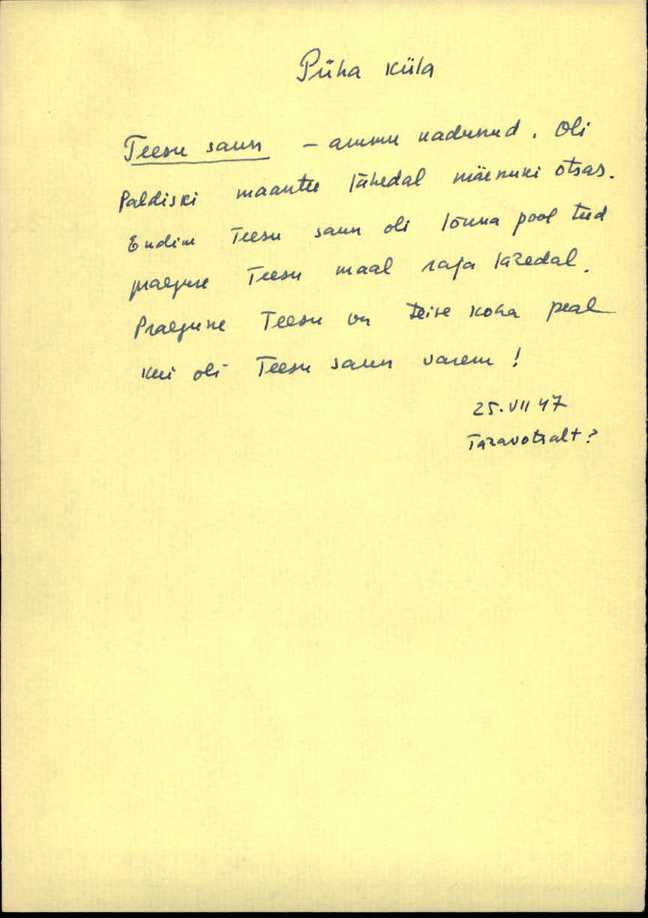 Püha küla
Teesu saun – ammu kadunud. Oli
Paldiski maantee lähedal mäenuki otsas.
Endine Teesu saun oli lõuna pool teed
praeguse Teesu maal raja lähedal.
Praegune Teesu on teise koha peal
kui oli Teesu saun varem!
25.VII 47
Taravotsalt?